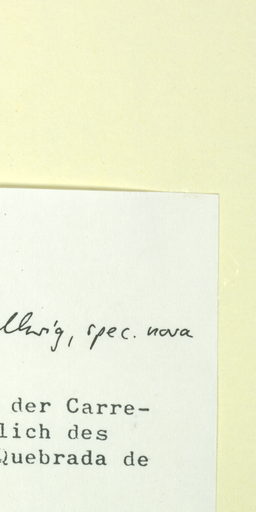 llwig, spec. nova
der Carre-
lich des
Quebrada de